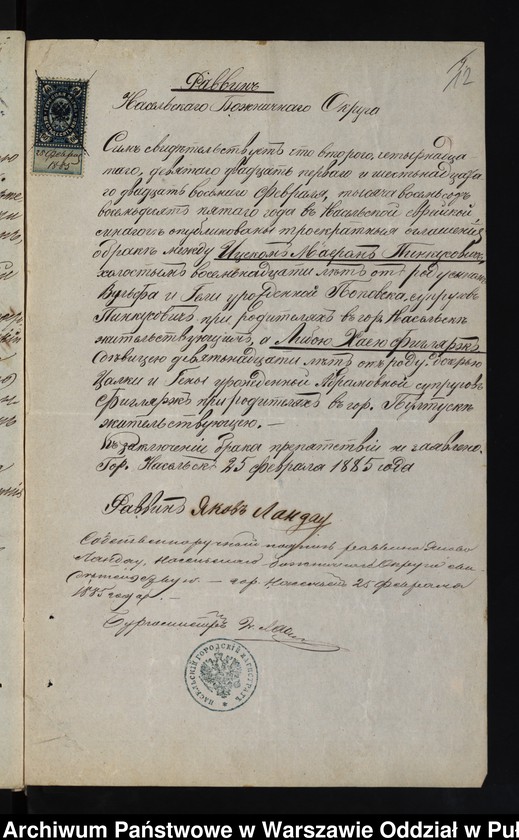 Раввинъ
Насельскаго Божничнаго Округа
Симъ свидѣтельствуетъ что второго, четырнадца
таго, девятаго двадцать перваго и шестнадцата
го двадцать восьмаго Февраля, тысяча восемьсотъ
восемьдесятъ пятаго года въ Насельской еврейской
синагогѣ опубликованы троекратныя оглашенія
о бракѣ между Ицкомъ Майеромъ Пинкусовичъ,
холостымъ восемьнадцати лѣтъ отъ роду сыномъ
Вульфа и урожденной супруговъ
Пинкусовичъ при родителяхъ въ гор. Насельскѣ
жительствующимъ, а Либою Хаею Фигляржъ
дѣвицею девятьнадцати лѣтъ отъ роду дочерью
Цалки и урожденной Абрамовной супруговъ
Фигляржъ при родителяхъ въ гор. Пултускѣ
жительствующею. —
Къ заключенію брака препятствій не заявлено.
Гор. Насельскъ 25 февраля 1885 года
Раввинъ Яковъ Ландау
Собственноручный подпись раввина Якова
Ландау, Насельскаго Божничнаго Округа сви-
дѣтельствую. — гор. Насельскъ 25 Февраля
1885 года. —
Бургомистръ
НАСЕЛЬСКІЙ ГОРОДСКІЙ МАГИСТРАТЪ
25 Февраля
1885
Archiwum Państwowe w Warszawie Oddział w Puł